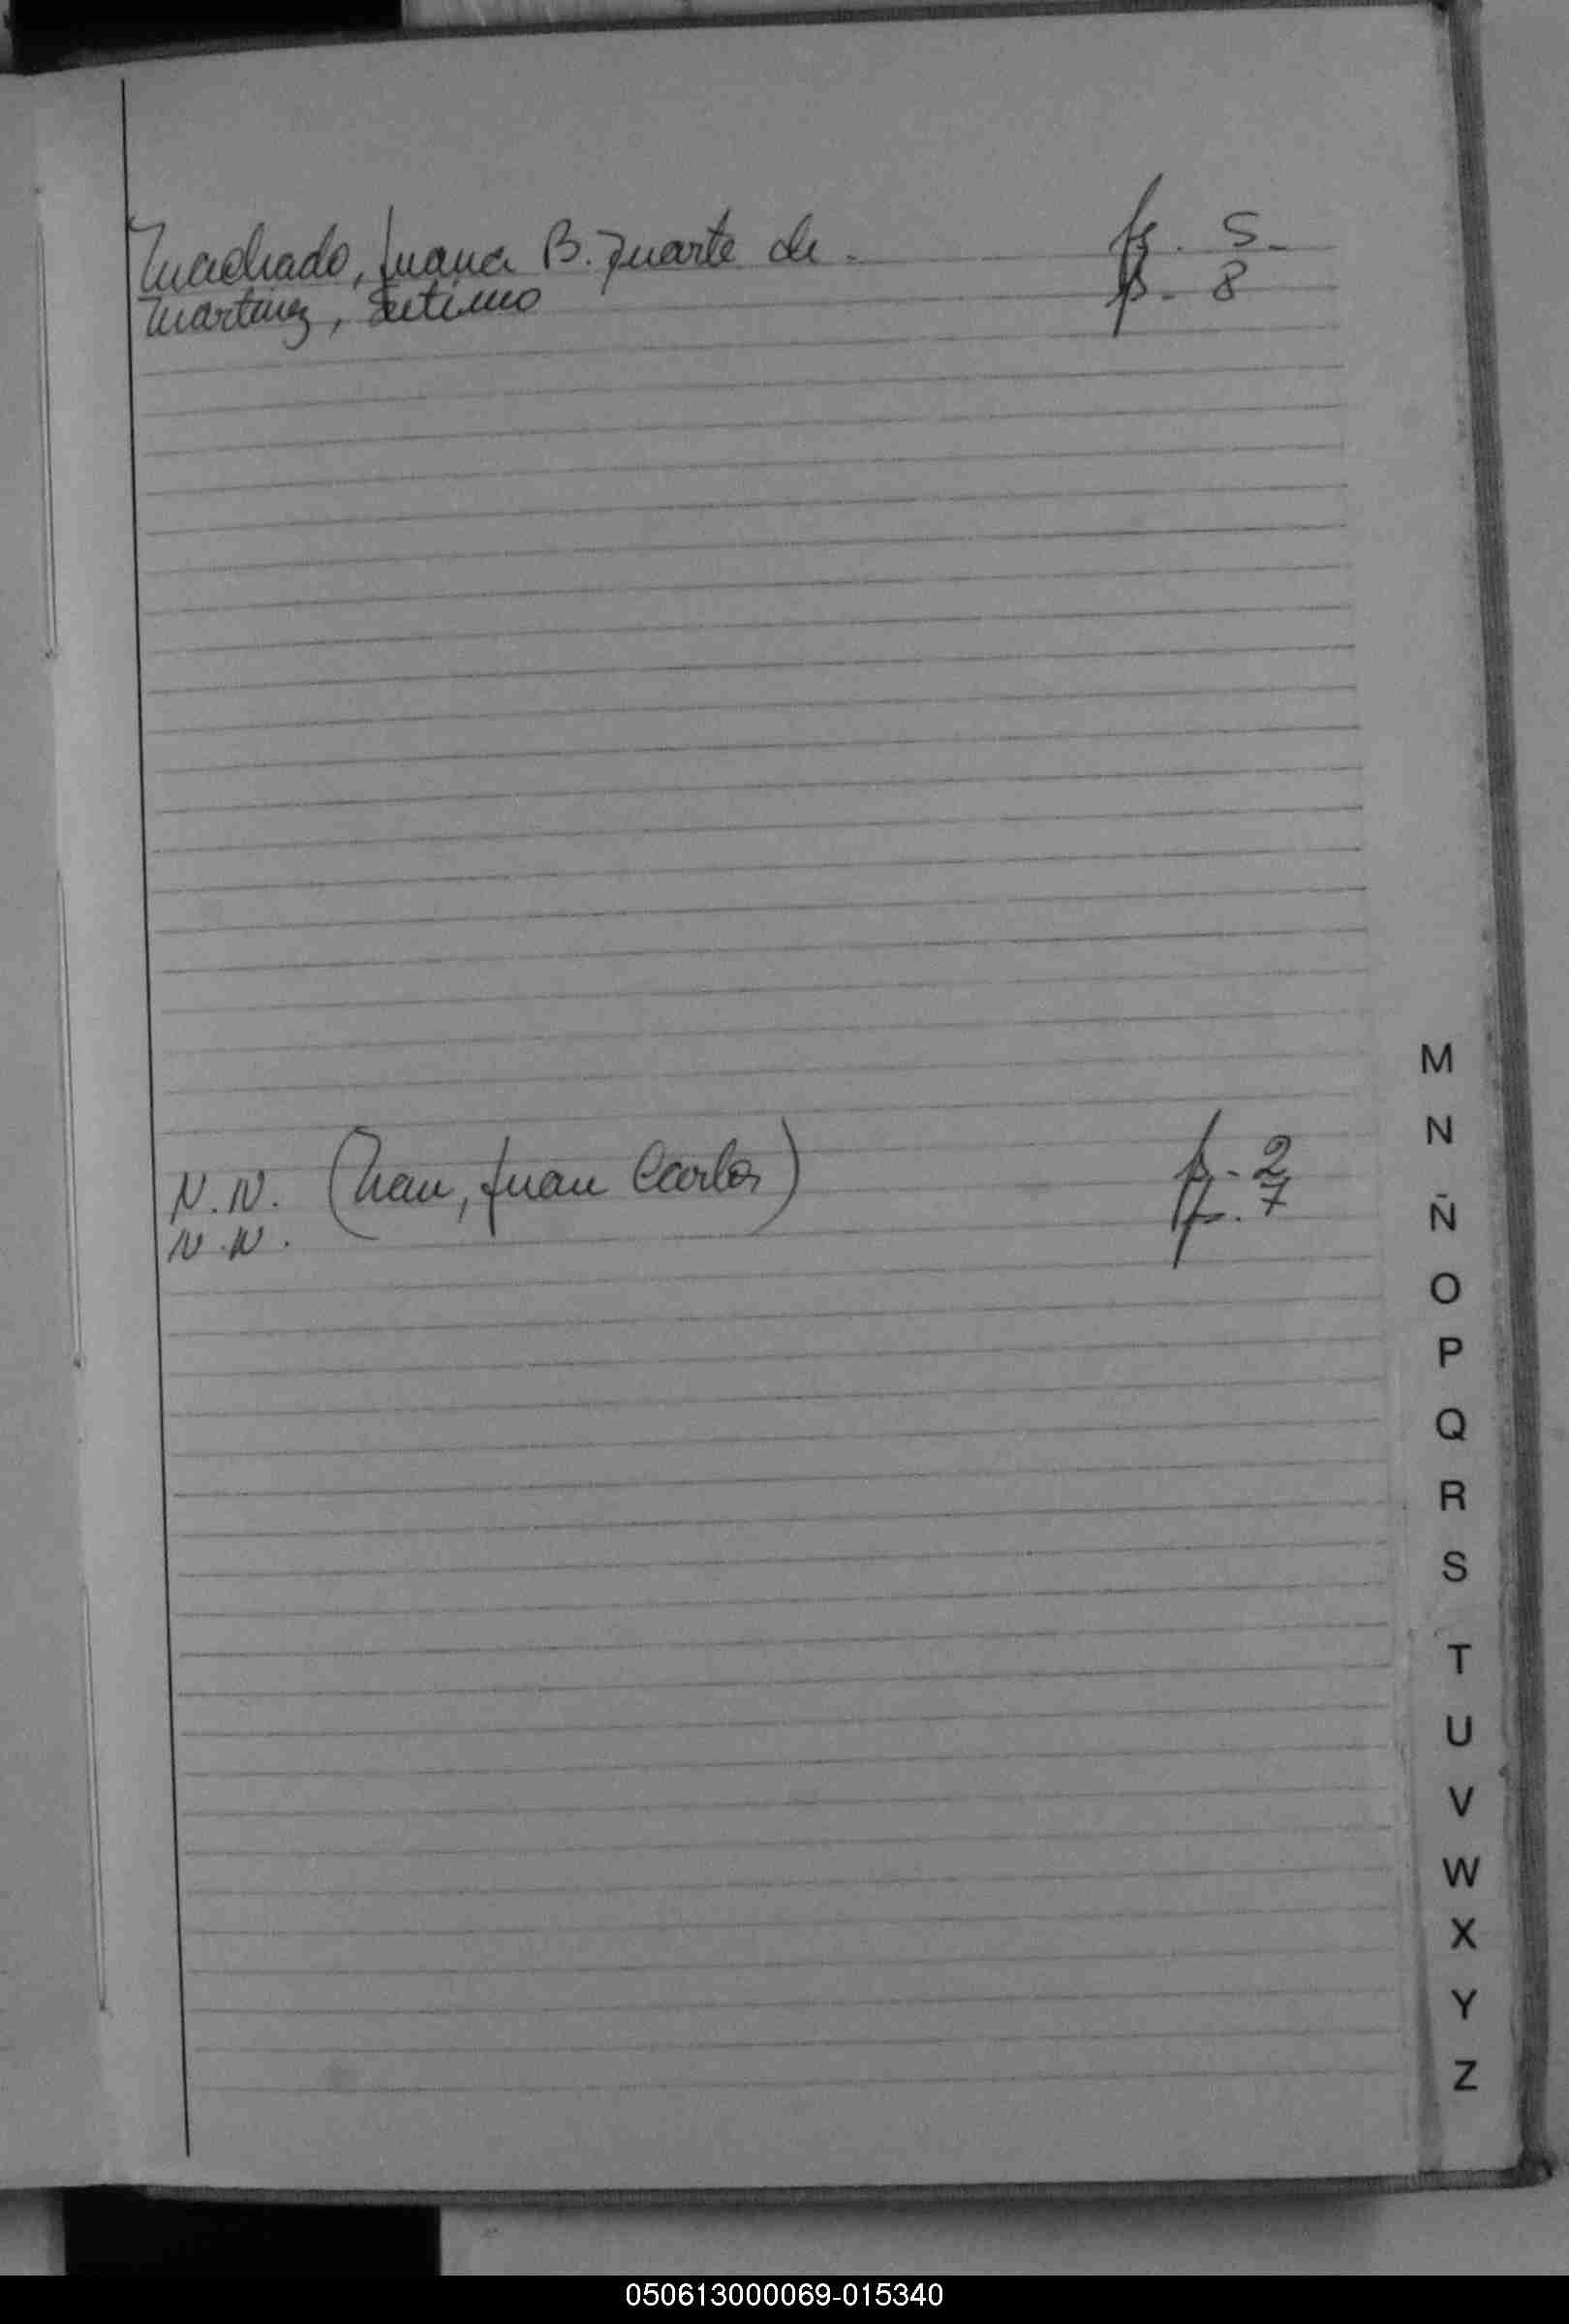 Machado, Juana B. Duarte de. f. 5.-
Martinez, f. 8
N.N. (Juan Carlos) f. 2
N.N. f. 7
M
N
Ñ
O
P
Q
R
S
T
U
V
W
X
Y
Z
050613000069-015340